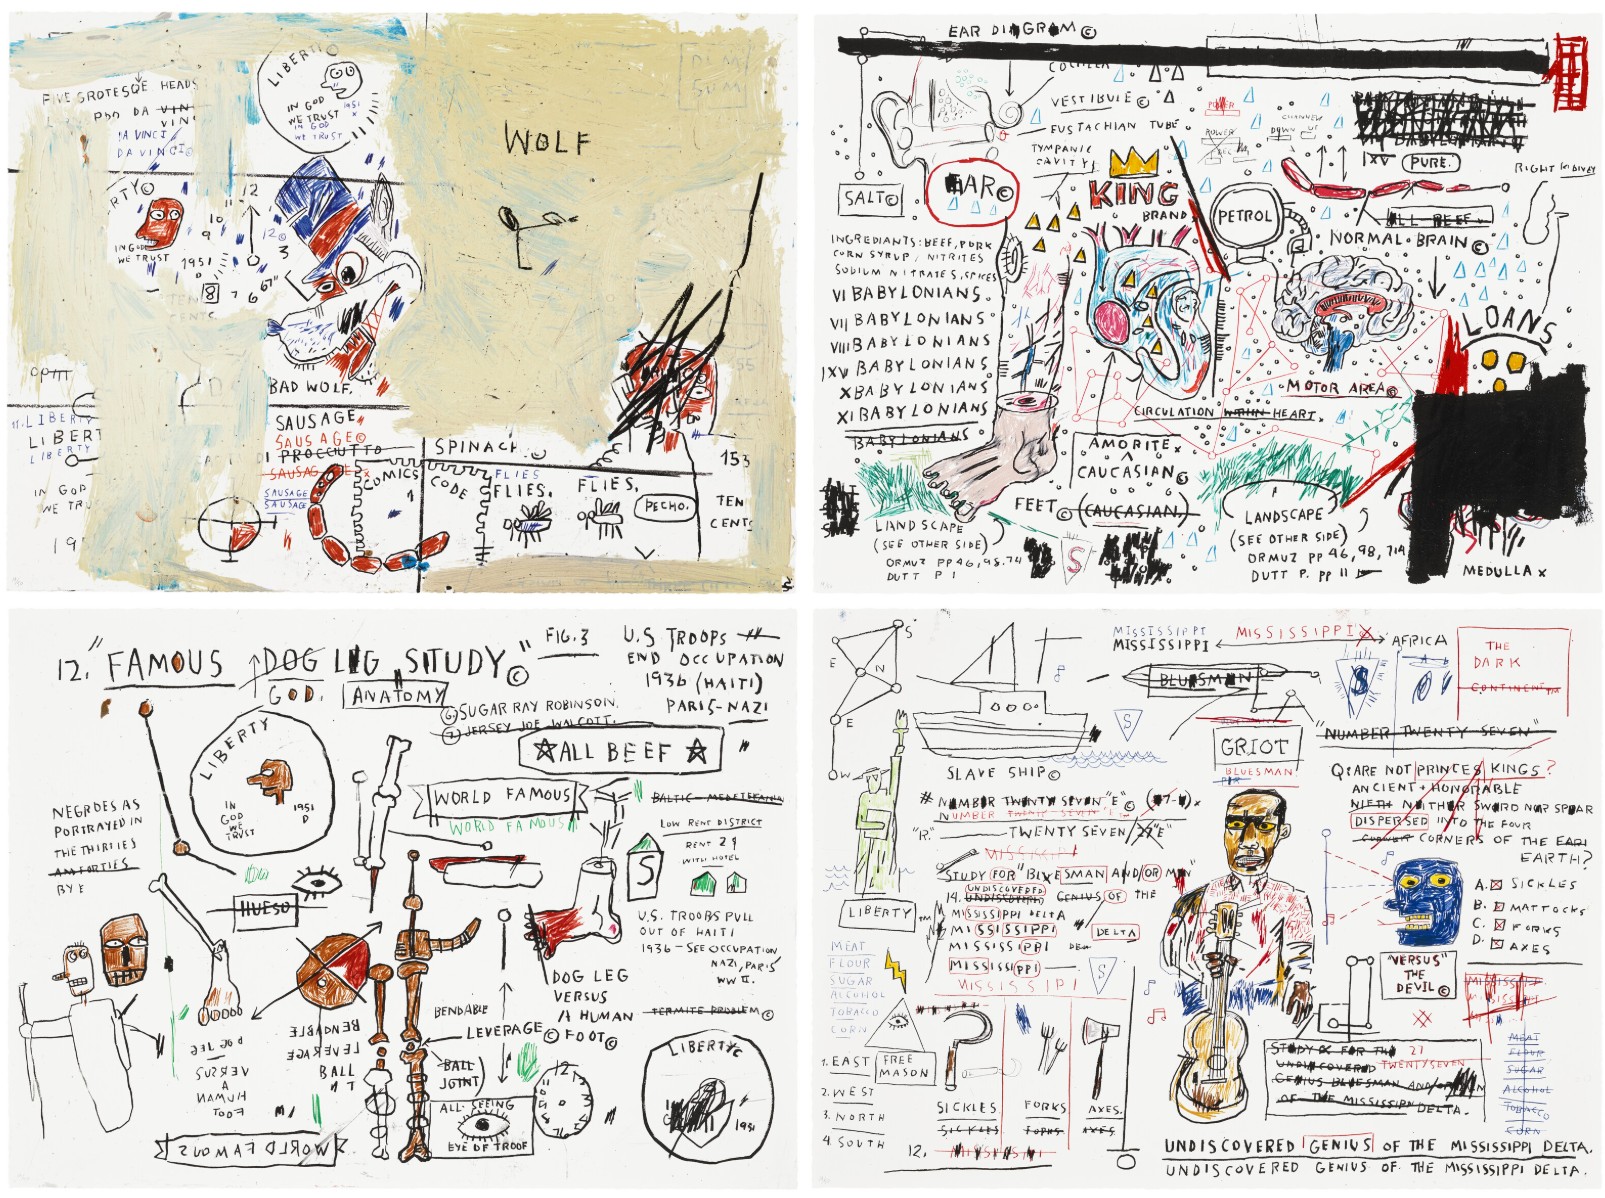 FIVE GROTESQE HEADS
DA VIN
VINC
DA VINCI
DA VINCI©
LIBERTI©
IN GOD
WE TRUST
IN GOD
WE TRUST
1951
RTY©
IN GOD
WE TRUST
1951
D
12
10
9
8
7
6
3
12©
67"
WOLF
BAD WOLF.
LIBERTY
LIBERT
LIBERTY
IN GOD
WE TRU
19
SAUSAGE
SAUSAGE©
PROCCUTTO
SAUSAGE
SAUSAGE
COMICS
CODE
SPINACH
FLIES
FLIES.
FLIES.
PECHO.
153
TEN
CENTS
EAR DIAGRAM©
COCHLEA
VESTIBULE©
EUSTACHIAN TUBE
TYMPANIC
CAVITY
SALT©
EAR©
KING
BRAND
POWER
POWER
PETROL
IXV
PURE.
ALL BEEF
RIGHT KIDNEY
NORMAL BRAIN©
INGREDIANTS: BEEF, PORK
CORN SYRUP / NITRITES
SODIUM NITRATES, SPICES
VI BABYLONIANS.
VII BABYLONIANS.
VIII BABYLONIANS.
IXV BABYLONIANS
X BABYLONIANS
XI BABYLONIANS
BABYLONIANS
LOANS
MOTOR AREA©
CIRCULATION WITHIN HEART.
AMORITE
CAUCASIAN©
(CAUCASIAN.)
FEET©
LANDSCAPE
(SEE OTHER SIDE)
ORMUZ PP 46, 98, 74
DUTT P 1
S
LANDSCAPE
(SEE OTHER SIDE)
ORMUZ PP 46, 98, 71A
DUTT P. PP 11
MEDULLA X
12. "FAMOUS DOG LEG STUDY"©
FIG. 3
GOD.
ANATOMY
U.S TROOPS
END OCCUPATION
1936 (HAITI)
PARIS-NAZI
6 SUGAR RAY ROBINSON.
7 JERSEY JOE WALCOTT.
ALL BEEF
LIBERTY
IN
GOD
WE
TRUST
1951
D
WORLD FAMOUS
WORLD FAMOUS
BALTIC-MEDETERANIA
LOW RENT DISTRICT
RENT 29
WITH HOTEL
S
NEGROES AS
PORTRAYED IN
THE THIRTIES
AMFORTIES
BY E
HUESO
U.S. TROOPS PULL
OUT OF HAITI
1936 - SEE OCCUPATION
NAZI, PARIS
WW II.
TERMITE PROBLEM©
DOG LEG
VERSUS
A HUMAN
FOOT©
BENDABLE
LEVERAGE©
BALL
JOINT
BENDABLE
LEVERAGE
BALL
DOG LEG
VERSUS
A
HUMAN
FOOT
ALL-SEEING
EYE OF TROOF
WORLD FAMOUS
12
LIBERTY©
1951
S
E
N
E
W
SLAVE SHIP©
MISSISSIPPI
MISSISSIPPI
MISSISSIPPI
AFRICA
BLUESMAN
S
S
THE
DARK
CONTINENT
GRIOT
BLUESMAN
"NUMBER TWENTY SEVEN"
Q: ARE NOT PRINCES KINGS?
ANCIENT + HONORABLE
NIETH NEITHER SWORD NOR SPEAR
DISPERSED INTO THE FOUR
CORNERS OF THE EARI
EARTH?
# NUMBER TWENTY SEVEN "E" ©
NUMBER TWENTY SEVEN "E"
"R." TWENTY SEVEN
MISSISSIPPI
STUDY FOR BLUESMAN AND/OR MEN"
UNDISCOVERED
14. UNDISCOVERED GENIUS OF THE
MISSISSIPPI DELTA
MISSISSIPPI
DELTA
MISSISSIPPI
MISSISSIPPI
MISSISSIPPI
S
LIBERTY
MEAT
FLOUR
SUGAR
ALCOHOL
TOBACCO
CORN
A. SICKLES
B. MATTOCKS
C. FORKS
D. AXES
"VERSUS"
THE
DEVIL©
MISSISSIPPI
MISSISSIPPI
MEAT
FLOUR
SUGAR
ALCOHOL
TOBACCO
CORN
1. EAST
2. WEST
3. NORTH
4. SOUTH
FREE
MASON
SICKLES
SICKLES
FORKS
FORKS
AXES.
AXES
12. MISSISSIPPI
STUDY FOR THE 27
UNDISCOVERED TWENTYSEVEN
GENIUS BLUESMAN AND/OR MEN
OF THE MISSISSIPPI DELTA.
UNDISCOVERED GENIUS OF THE MISSISSIPPI DELTA.
UNDISCOVERED GENIUS OF THE MISSISSIPPI DELTA.